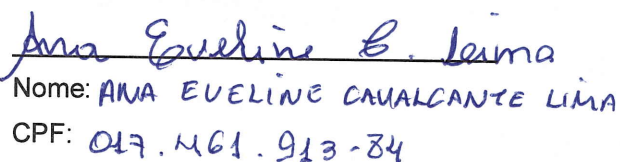 Ana Eveline C. Lima
Nome: ANA EVELINE CAVALCANTE LIMA
CPF: 017.461.913-84